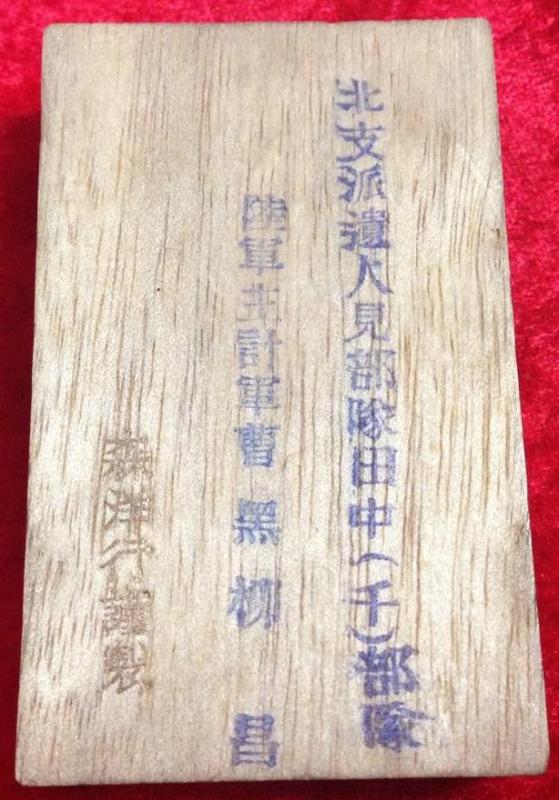 北支派遣人見部隊田中(千)部隊
陸軍主計軍曹 黑柳 昌
森洋行謹製